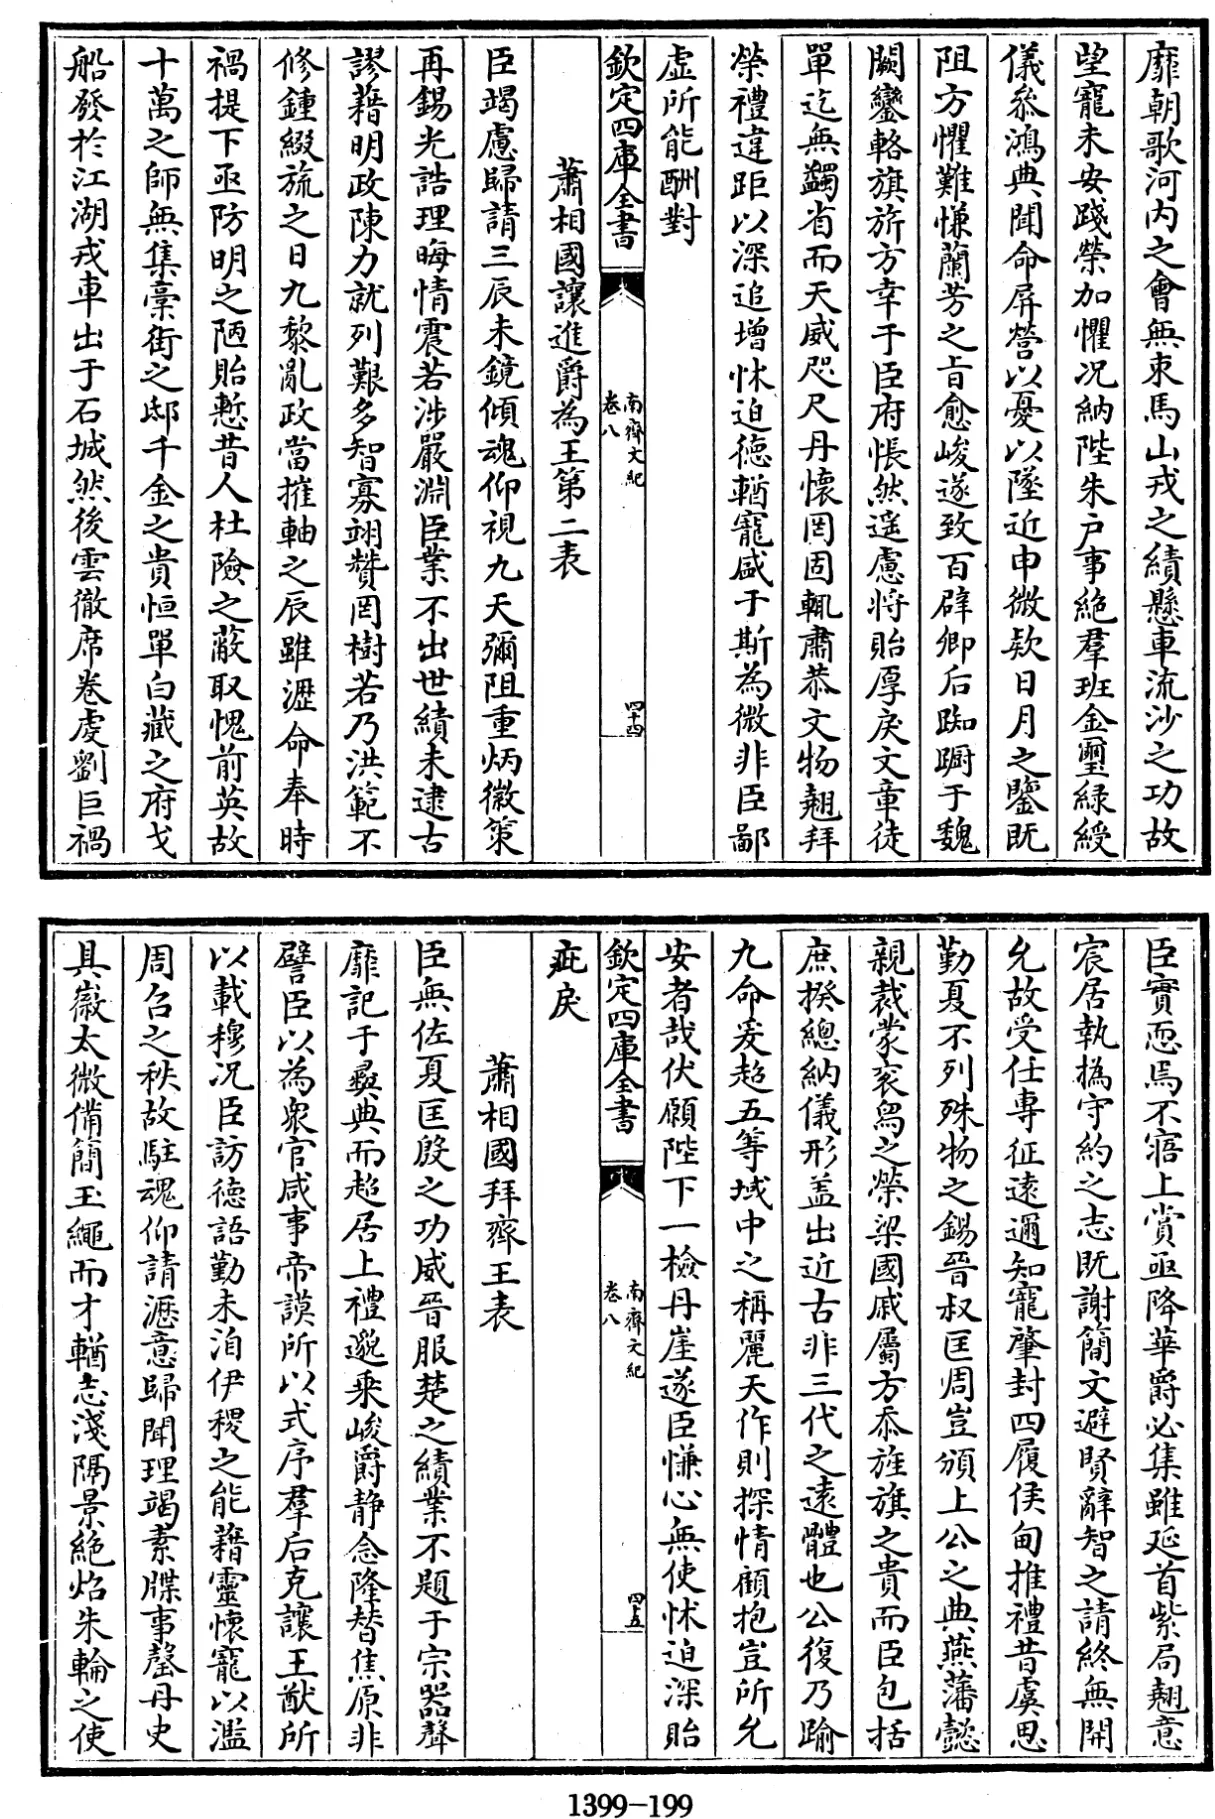 靡朝歌河内之會無束馬山戎之績懸車流沙之功故
望寵未安踐榮加懼况納陛朱戶事絶羣班金璽緑綬
儀叅鴻典聞命屏營以憂以墜近申微欵日月之鑒既
阻方懼難慊蘭芳之㫖愈峻遂致百辟卿后踟蹰于魏
闕鑾輅旗旂方幸于臣府悵然遥慮將貽厚戾文章徒
單迄無蠲省而天威咫尺丹懐罔固輒肅恭文物翹拜
榮禮違距以深追增怵迫德輶寵盛于斯為微非臣鄙
虚所能酬對
欽定四庫全書
南齊文紀
卷八
四十四
蕭相國讓進爵為王第二表
臣竭慮歸請三辰未鏡傾魂仰視九天彌阻重炳徽策
再錫光誥理晦情震若涉嚴淵臣業不出世績未逮古
謬藉明政陳力就列艱多智寡翊贊罔樹若乃洪範不
修鍾綴旒之日九黎亂政當摧軸之辰雖瀝命奉時
禍提下亟防明之陋貽慙昔人杜險之蔽取愧前英故
十萬之師無集藁街之邸千金之貴恒單白藏之府戈
船發於江湖戎車出于石城然後雲徹席卷虔劉巨禍
臣實恧焉不寤上賞亟降華爵必集雖延首紫局翹意
宸居執撝守約之志既謝簡文避賢辭智之請終無開
允故受任專征遠邇知寵肇封四履侯甸推禮昔虞思
勤夏不列殊物之錫晉叔匡周豈頒上公之典燕藩懿
親裁蒙衮舄之榮梁國戚屬方忝旌旗之貴而臣包括
庶揆總納儀形盖出近古非三代之遠體也公復乃踰
九命爰超五等域中之稱麗天作則探情顧抱豈所允
安者哉伏願陛下一檢丹崖遂臣慊心無使怵迫深貽
欽定四庫全書
南齊文紀
卷八
四十五
疵戾
蕭相國拜齊王表
臣無佐夏匡殷之功威晉服楚之績業不題于宗器聲
靡記于彝典而超居上禮邈乘峻爵静念隆替焦原非
譬臣以為衆官咸事帝謨所以式序羣后克讓王猷所
以載穆况臣訪德語勤未洎伊稷之能藉靈懐寵以濫
周召之秩故駐魂仰請瀝意歸聞理竭素牒事罄丹史
具徽太微備簡玉繩而才輶志淺隔景絶焰朱輪之使
1399-199